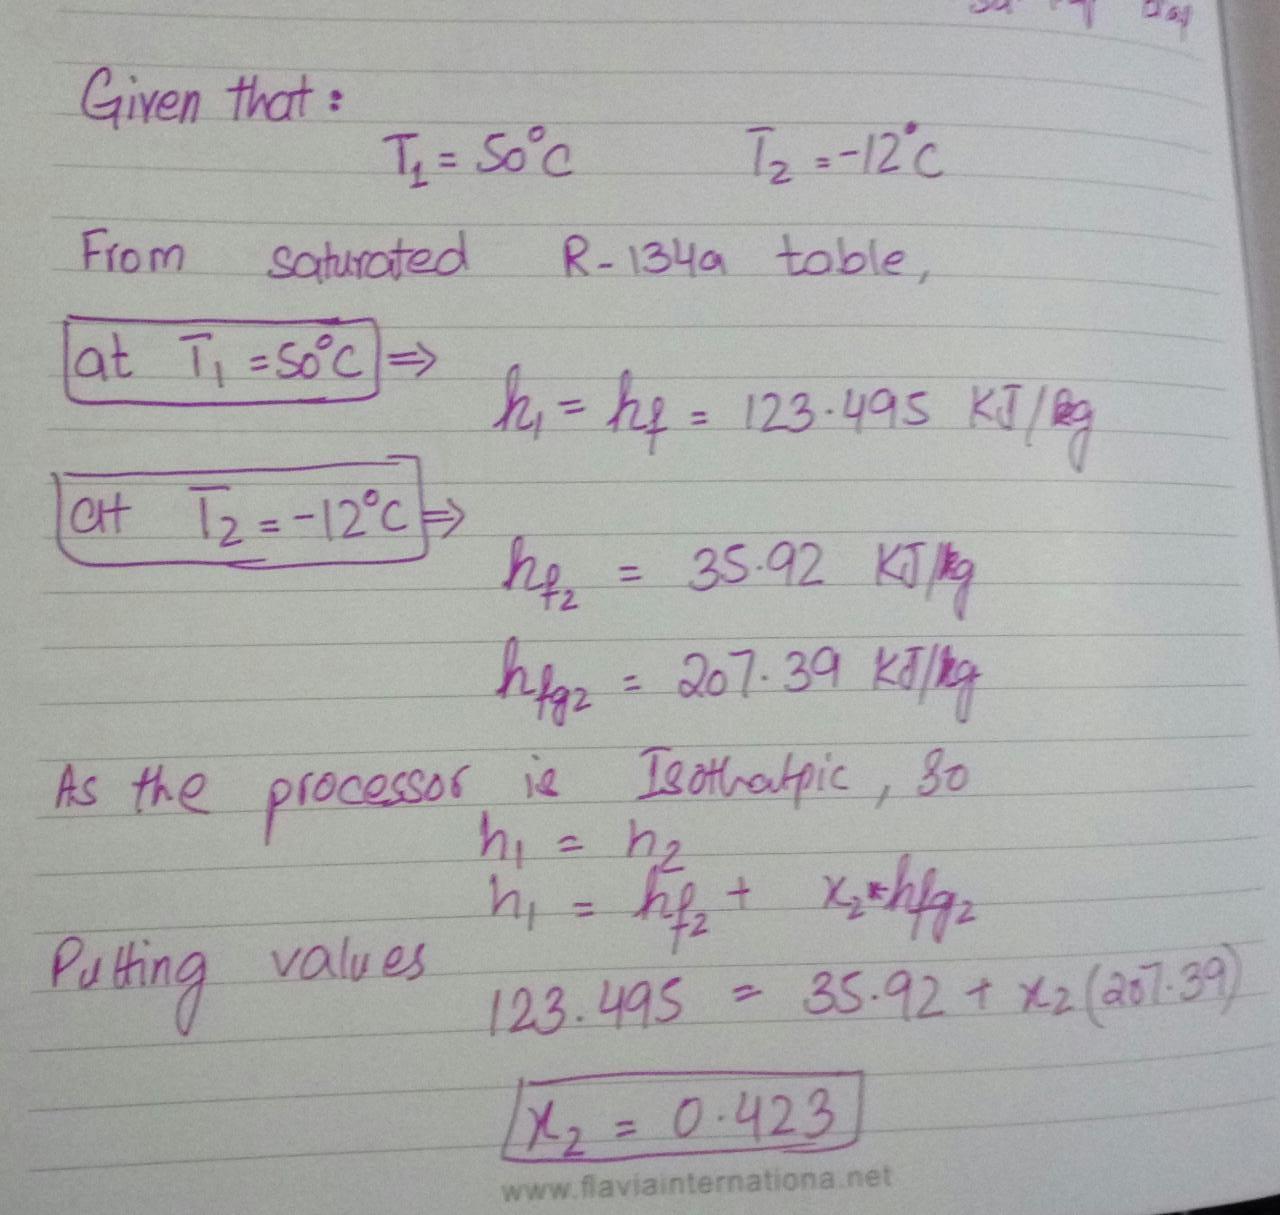 Given that:
T₁ = 50°C T₂ = -12°C
From saturated R-134a table,
at T₁ = 50°C ⇒
h₁ = hf = 123.495 KJ/kg
at T₂ = -12°C ⇒
hf₂ = 35.92 KJ/kg
hfg₂ = 207.39 KJ/kg
As the processor is Isothalpic, so
h₁ = h₂
h₁ = hf₂ + x₂*hfg₂
Putting values
123.495 = 35.92 + x₂(207.39)
x₂ = 0.423
www.flaviainternationa.net